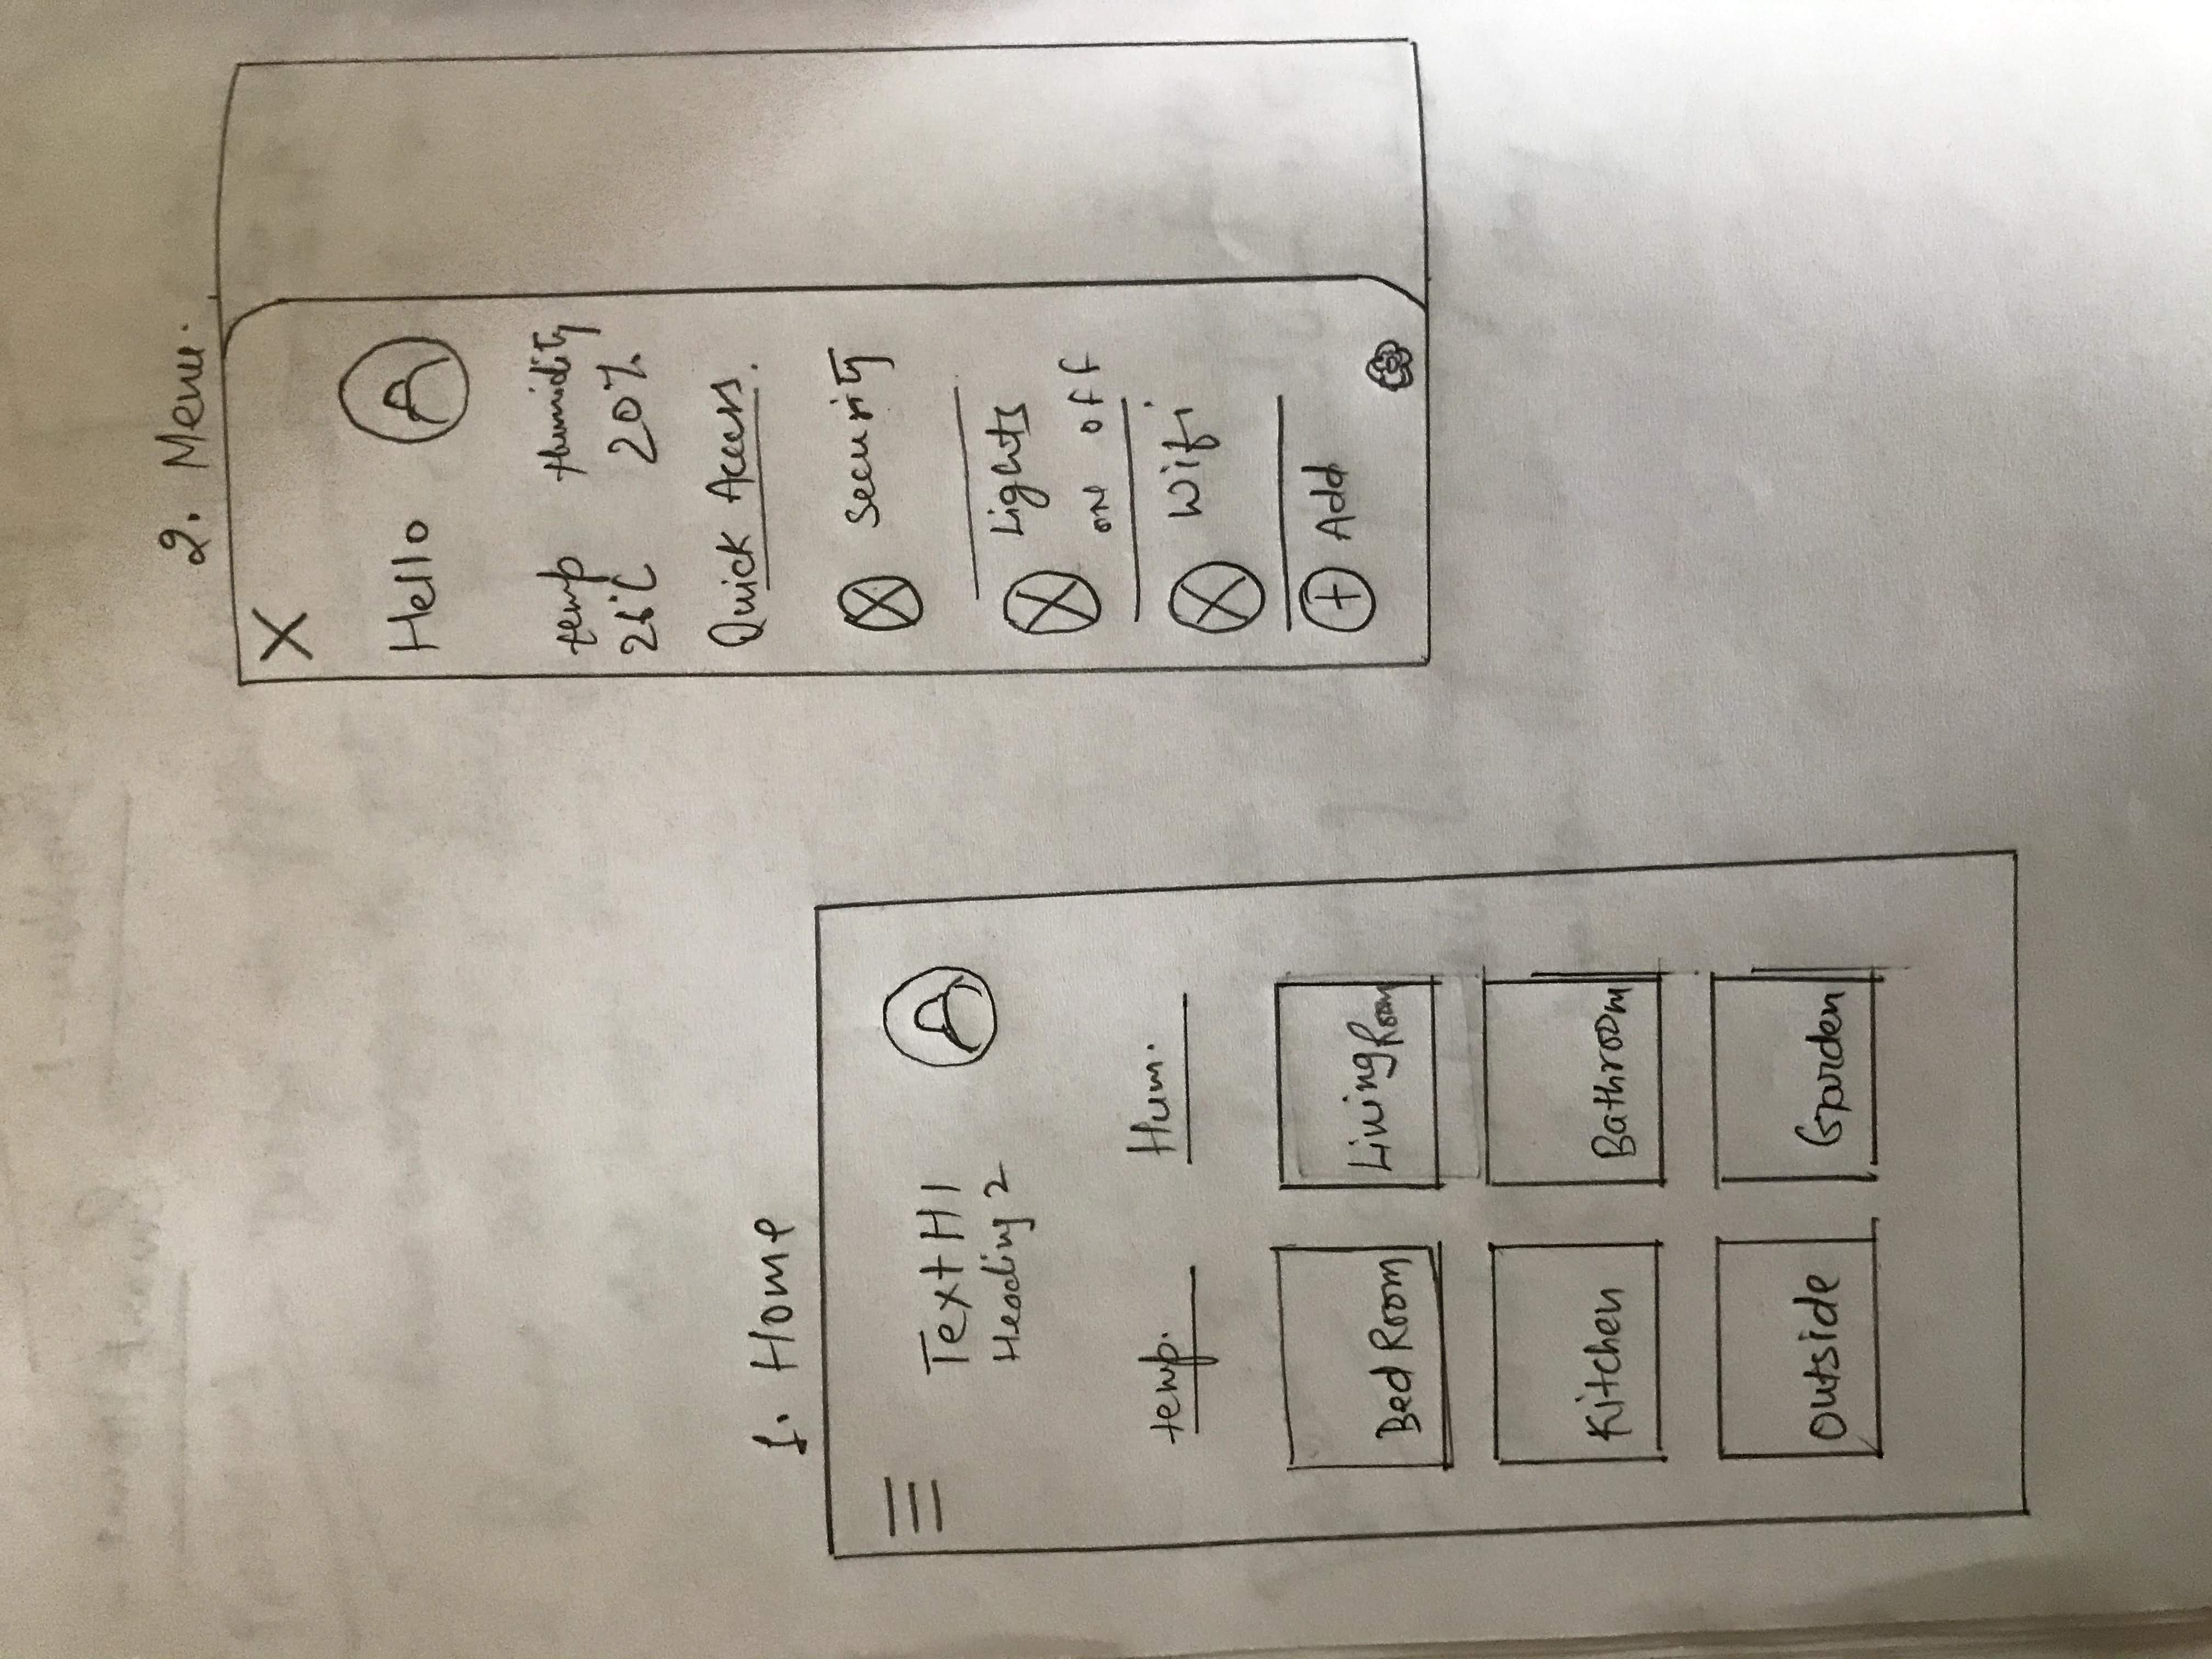 1. Home
Text H1
Heading 2
temp. Hum.
Bed Room Living Room
Kitchen Bathroom
Outside Garden
2. Menu.
X
Hello
temp Humidity
20%
Quick Access.
Security
Lights
on off
Wifi
+ Add